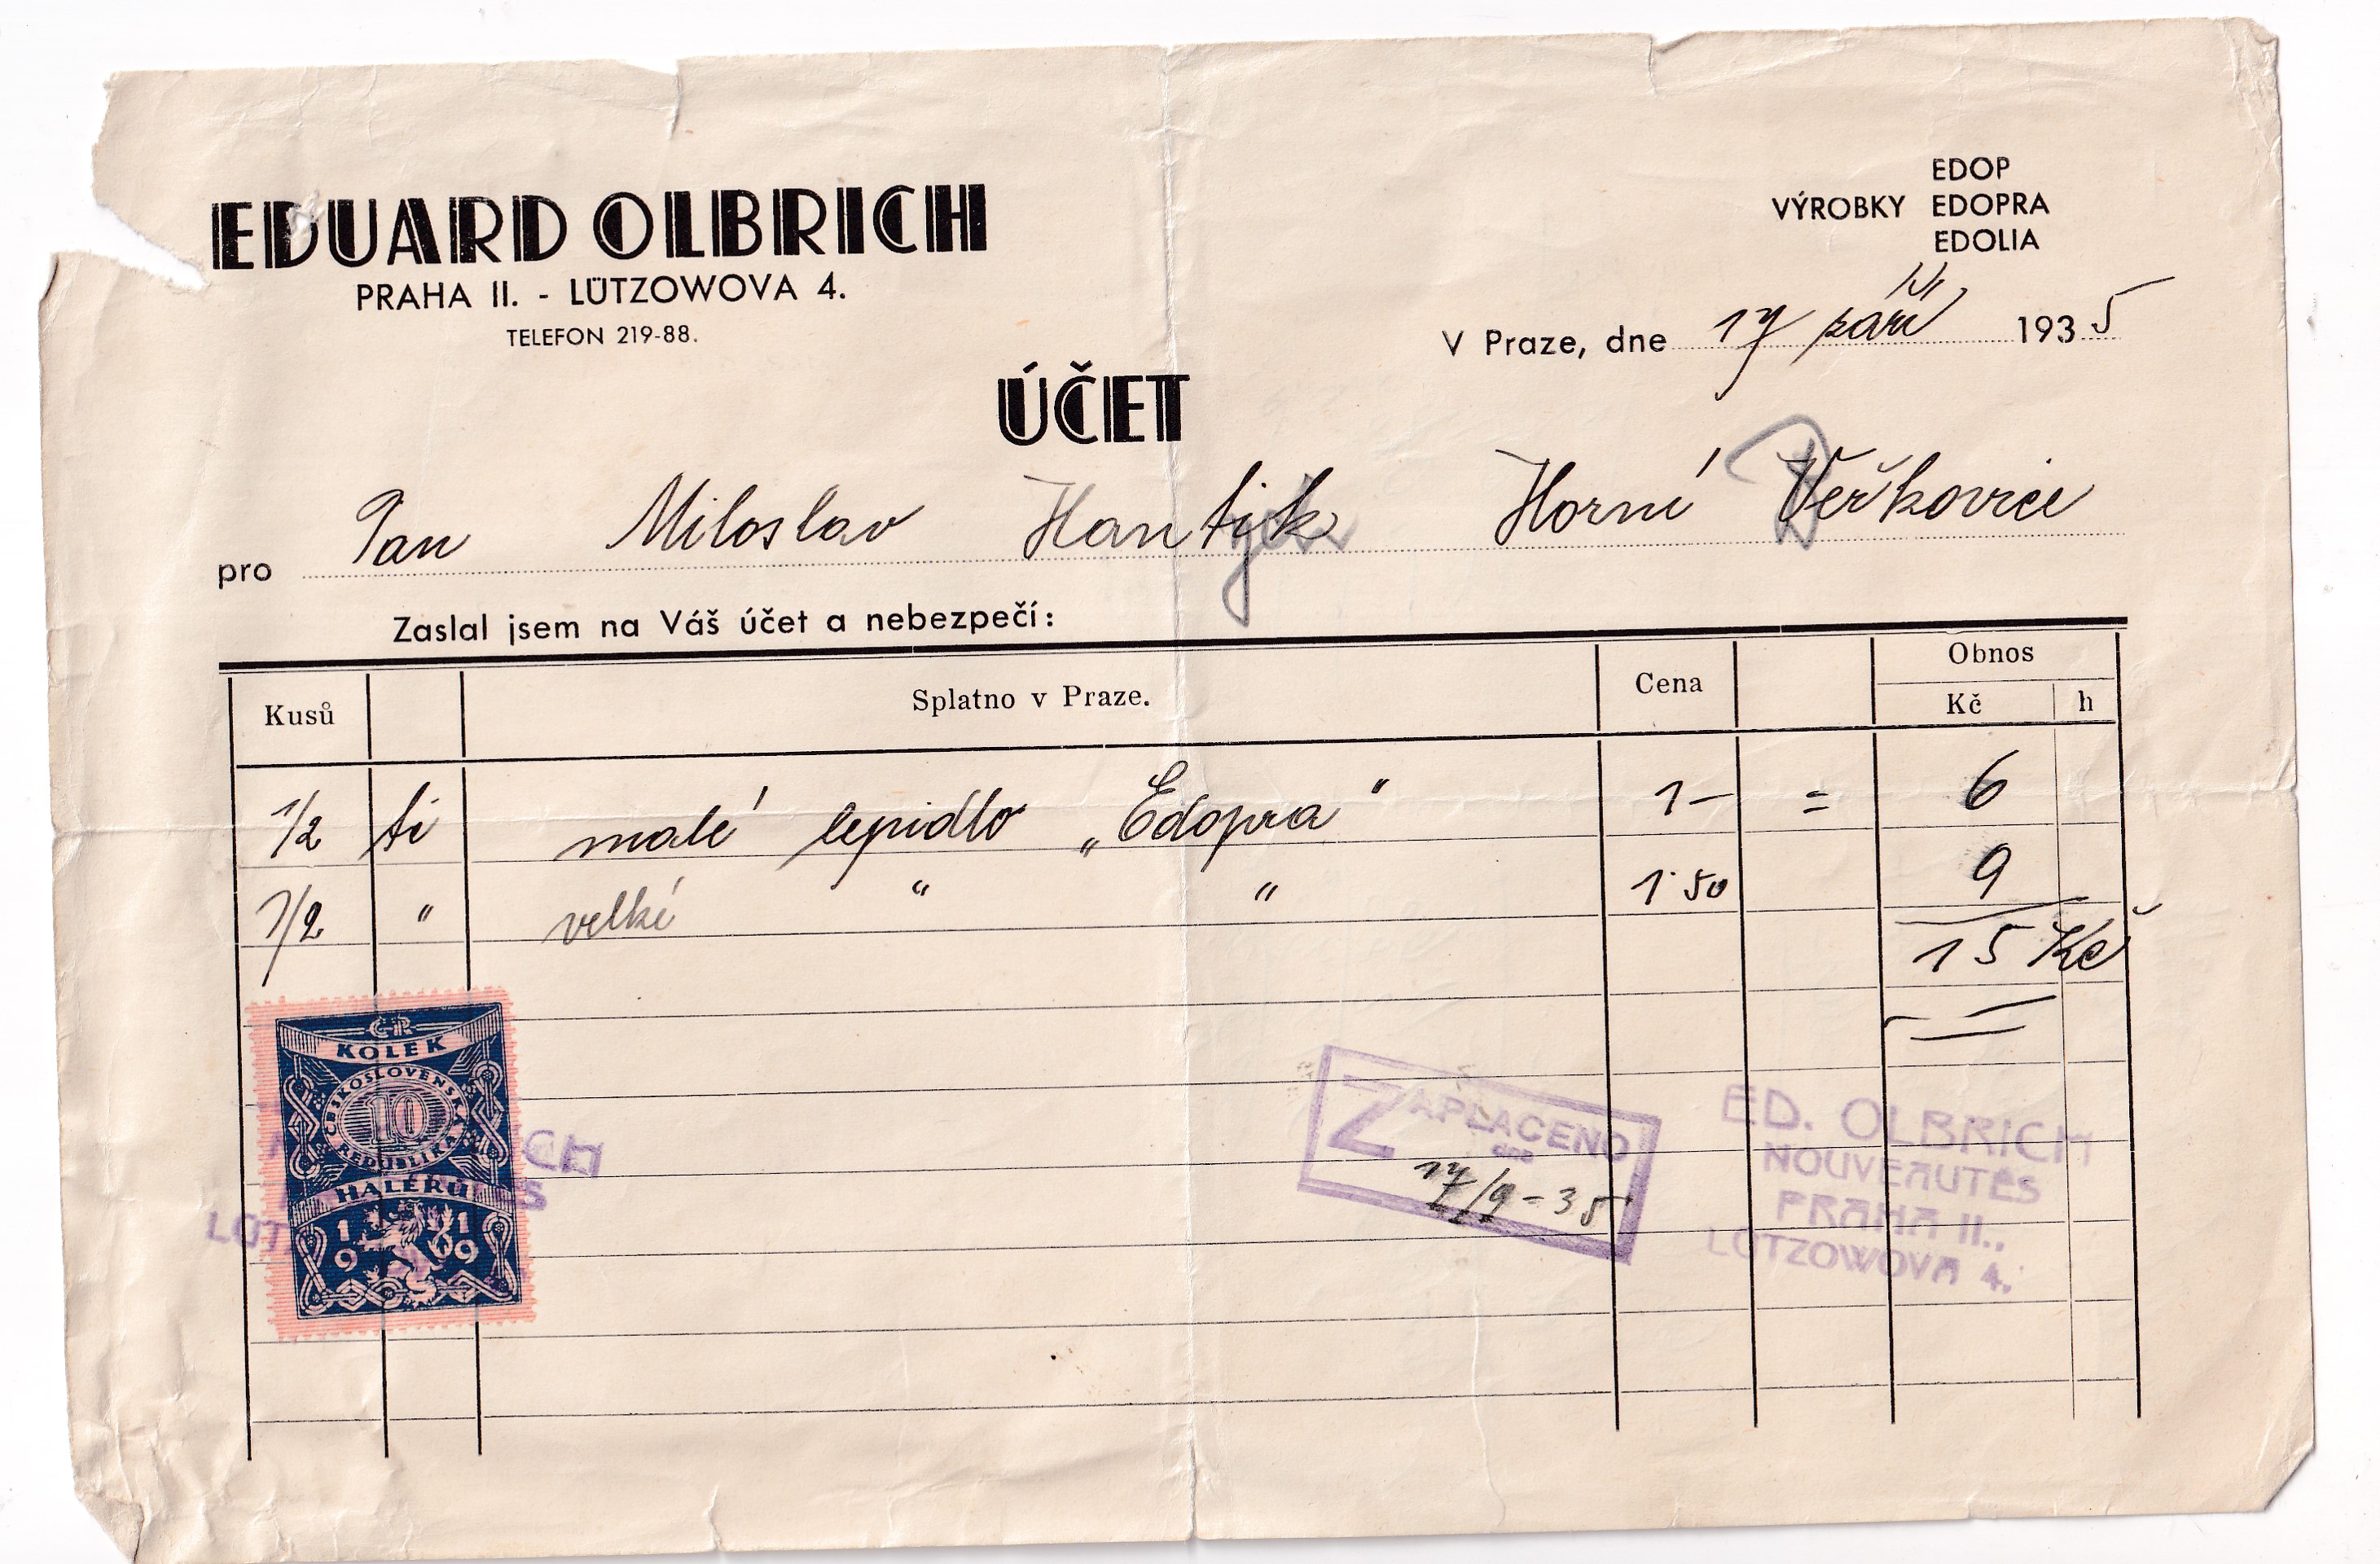 EDUARD OLBRICH
PRAHA II. - LÜTZOWOVA 4.
TELEFON 219-88.
VÝROBKY EDOP
EDOPRA
EDOLIA
V Praze, dne 17 září 1935
ÚČET
pro Pan Miloslav Horní
Zaslal jsem na Váš účet a nebezpečí:
Kusů Splatno v Praze. Cena Obnos
Kč h
1/2 ti malé lepidlo „Edopra" 1- = 6
1/2 " velké " " 1·50 9
15 Kč
ČR
KOLEK
ČESKOSLOVENSKÁ
10
REPUBLIKA
HALÉŘŮ
1919
ZAPLACENO
dne
17/9-35
ED. OLBRICH
NOUVEAUTÉS
PRAHA II.,
LÜTZOWOVA 4.